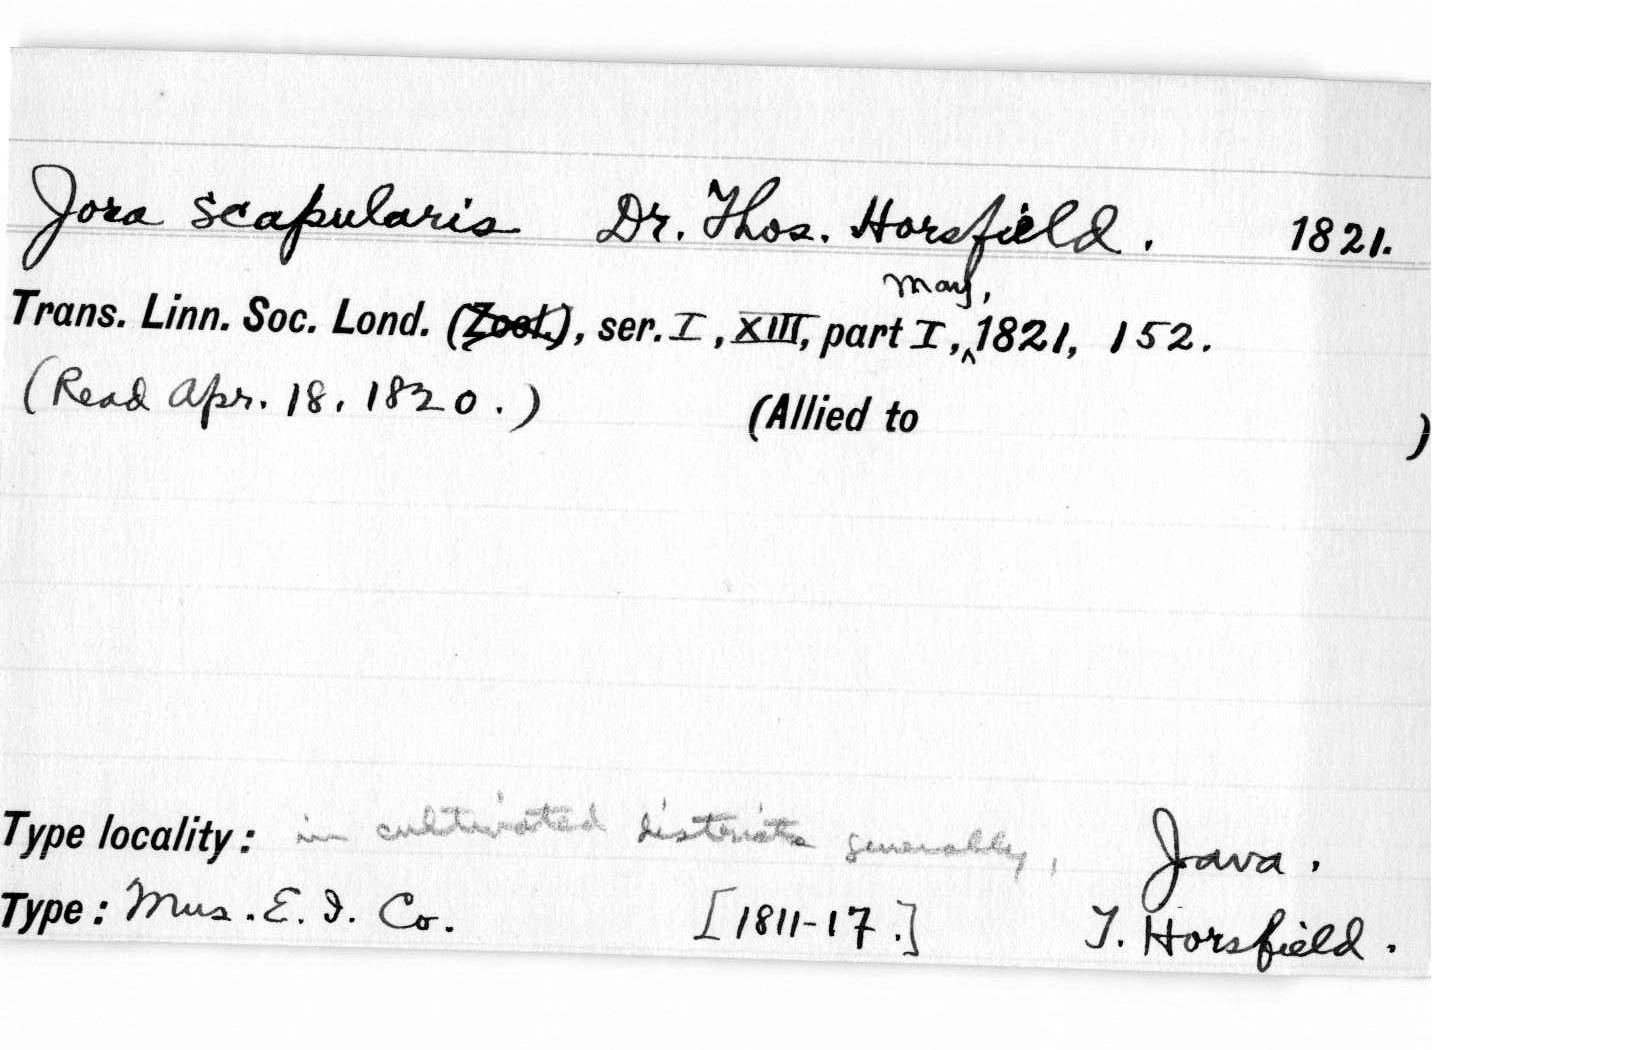 Jora scapularis Dr. Thos. Horsfield. 1821.
May,
Trans. Linn. Soc. Lond. (Zool.), ser. I, XIII, part I, ^1821, 152.
(Read Apr. 18, 1820.) (Allied to )
Type locality: in cultivated districts generally, Java.
Type: Mus. E. I. Co. [1811-17.] T. Horsfield.